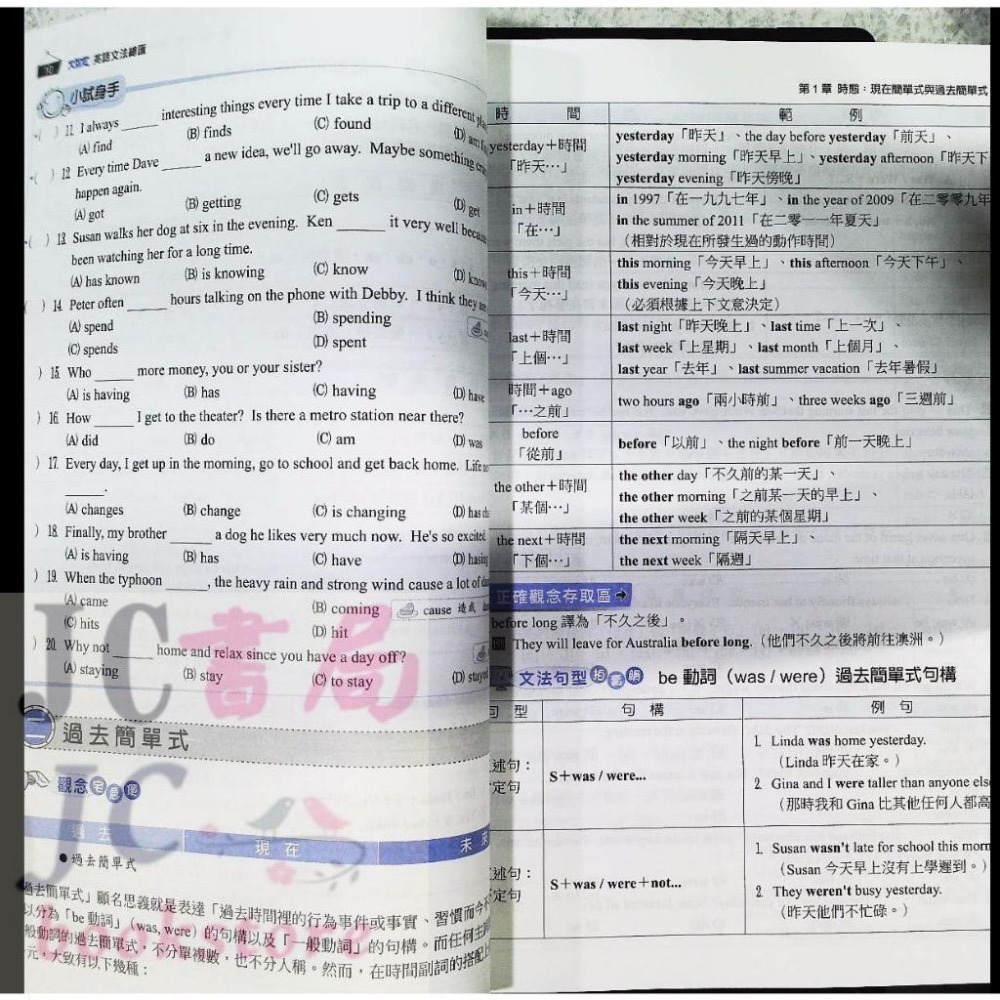 大設定 英語文法總匯
小試身手
( ) 11. I always ______ interesting things every time I take a trip to a different
(A) find (B) finds (C) found (D)
( ) 12. Every time Dave ______ a new idea, we'll go away. Maybe something
happen again.
(A) got (B) getting (C) gets (D) get
( ) 13. Susan walks her dog at six in the evening. Ken ______ it very well because
been watching her for a long time.
(A) has known (B) is knowing (C) know (D)
( ) 14. Peter often ______ hours talking on the phone with Debby. I think they
(A) spend (B) spending
(C) spends (D) spent
) 15. Who ______ more money, you or your sister?
(A) is having (B) has (C) having (D) have
) 16. How ______ I get to the theater? Is there a metro station near there?
(A) did (B) do (C) am (D) was
) 17. Every day, I get up in the morning, go to school and get back home. Life
______.
(A) changes (B) change (C) is changing (D) has
) 18. Finally, my brother ______ a dog he likes very much now. He's so excited.
(A) is having (B) has (C) have (D) hasing
) 19. When the typhoon ______, the heavy rain and strong wind cause a lot of
(A) came (B) coming cause 造成
(C) hits (D) hit
) 20. Why not ______ home and relax since you have a day off?
(A) staying (B) stay (C) to stay (D) stayed
JC書局
二 過去簡單式
觀念
過去 現在 未來
●過去簡單式
過去簡單式」顧名思義就是表達「過去時間裡的行為事件或事實、習慣而今不
以分為「be 動詞」(was, were) 的句構以及「一般動詞」的句構。而任何主詞
般動詞的過去簡單式,不分單複數,也不分人稱。然而,在時間副詞的搭配上
元,大致有以下幾種:
JC
bookstore
第 1 章 時態:現在簡單式與過去簡單式
時 間 範 例
yesterday+時間
「昨天…」
yesterday「昨天」、the day before yesterday「前天」、
yesterday morning「昨天早上」、yesterday afternoon「昨天下
yesterday evening「昨天傍晚」
in+時間
「在…」
in 1997「在一九九七年」、in the year of 2009「在二零零九年
in the summer of 2011「在二零一一年夏天」
(相對於現在所發生過的動作時間)
this+時間
「今天…」
this morning「今天早上」、this afternoon「今天下午」、
this evening「今天晚上」
(必須根據上下文意決定)
last+時間
「上個…」
last night「昨天晚上」、last time「上一次」、
last week「上星期」、last month「上個月」、
last year「去年」、last summer vacation「去年暑假」
時間+ago
「…之前」
two hours ago「兩小時前」、three weeks ago「三週前」
before
「從前」
before「以前」、the night before「前一天晚上」
the other+時間
「某個…」
the other day「不久前的某一天」、
the other morning「之前某一天的早上」、
the other week「之前的某個星期」
the next+時間
「下個…」
the next morning「隔天早上」、
the next week「隔週」
正確觀念存取區
before long 譯為「不久之後」。
They will leave for Australia before long.(他們不久之後將前往澳洲。)
文法句型 be 動詞(was / were)過去簡單式句構
句 型 句 構 例 句
述句:
定句
S+was / were...
1. Linda was home yesterday.
(Linda 昨天在家。)
2. Gina and I were taller than anyone else
(那時我和 Gina 比其他任何人都高
述句:
定句
S+was / were+not...
1. Susan wasn't late for school this morn
(Susan 今天早上沒有上學遲到。)
2. They weren't busy yesterday.
(昨天他們不忙碌。)